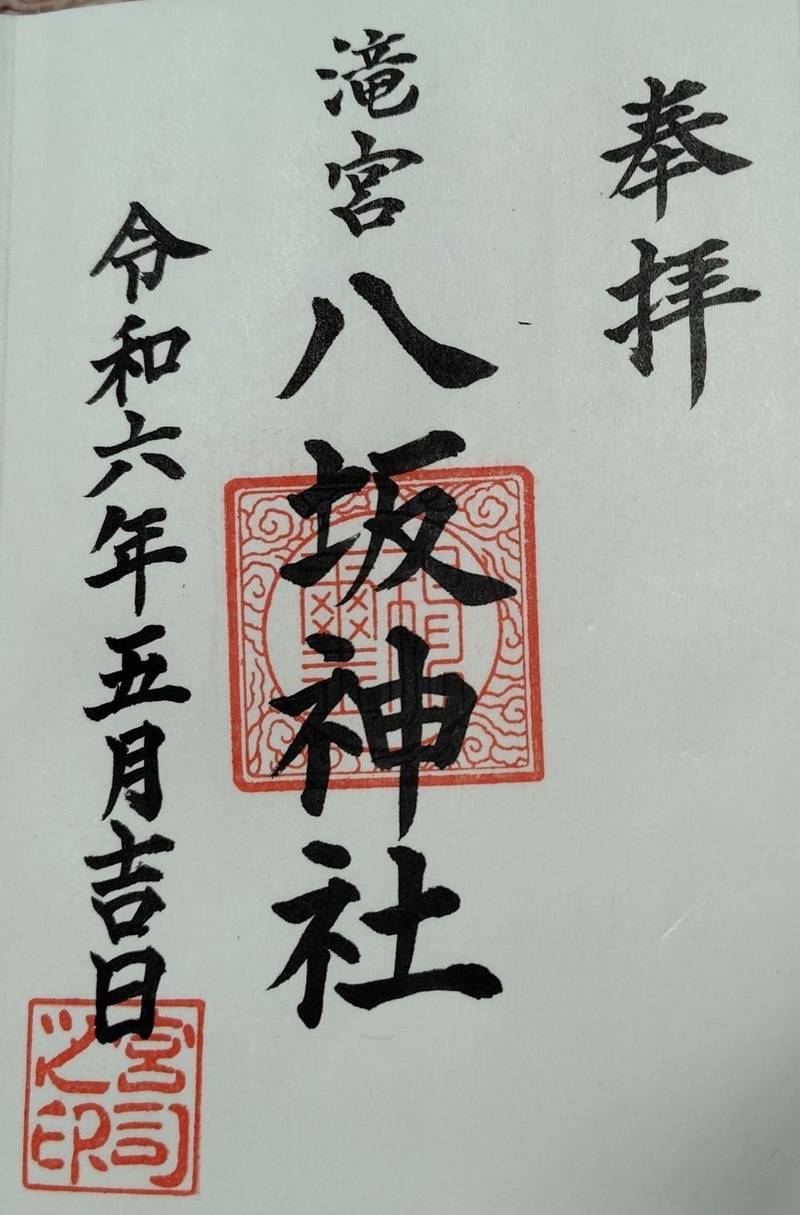 奉拝
滝宮八坂神社
令和六年五月吉日
宮司之印